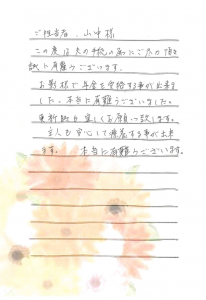 ご担当者 山中様
この度は夫の手続の為にご尽力頂き
誠に有難うございます。
お影様で年金を受給する事が出来ま
した。本当に有難うございました。
更新時も宜しくお願い致します。
主人も安心して療養する事が出来
ます。 本当に有難うございます。